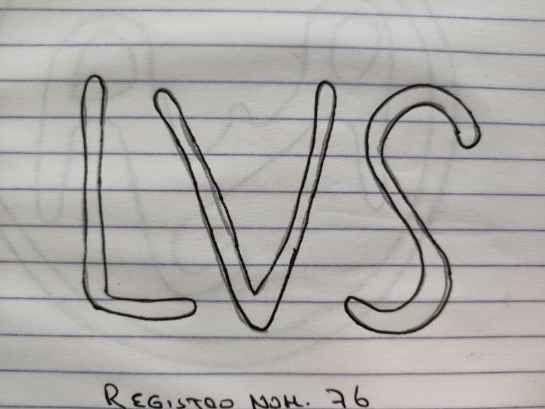 LVS
REGISTRO NUM. 76